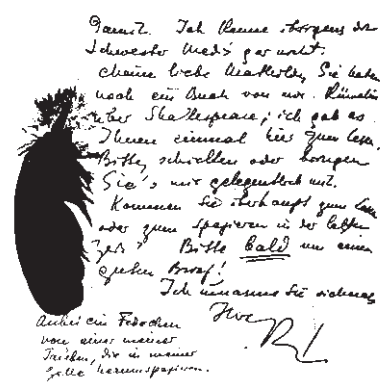 Damit. Ich kenne übrigens die
Schwester Medi gar nicht.
Meine liebe Mathilde, Sie haben
noch ein Buch von mir. Rümelin
über Shakespeare; ich gab es
Ihnen einmal hier zum Lesen.
Bitte, schicken oder bringen
Sie's mir gelegentlich mit.
Kommen Sie überhaupt zum Lesen
oder zum Spazieren in der letzten
Zeit? Bitte bald um einen
guten Brief!
Ich umarme Sie vielmals
Ihre
RL
Anbei ein Federchen
von einer meiner
Tauben, die in meiner
Zelle herumspazieren.